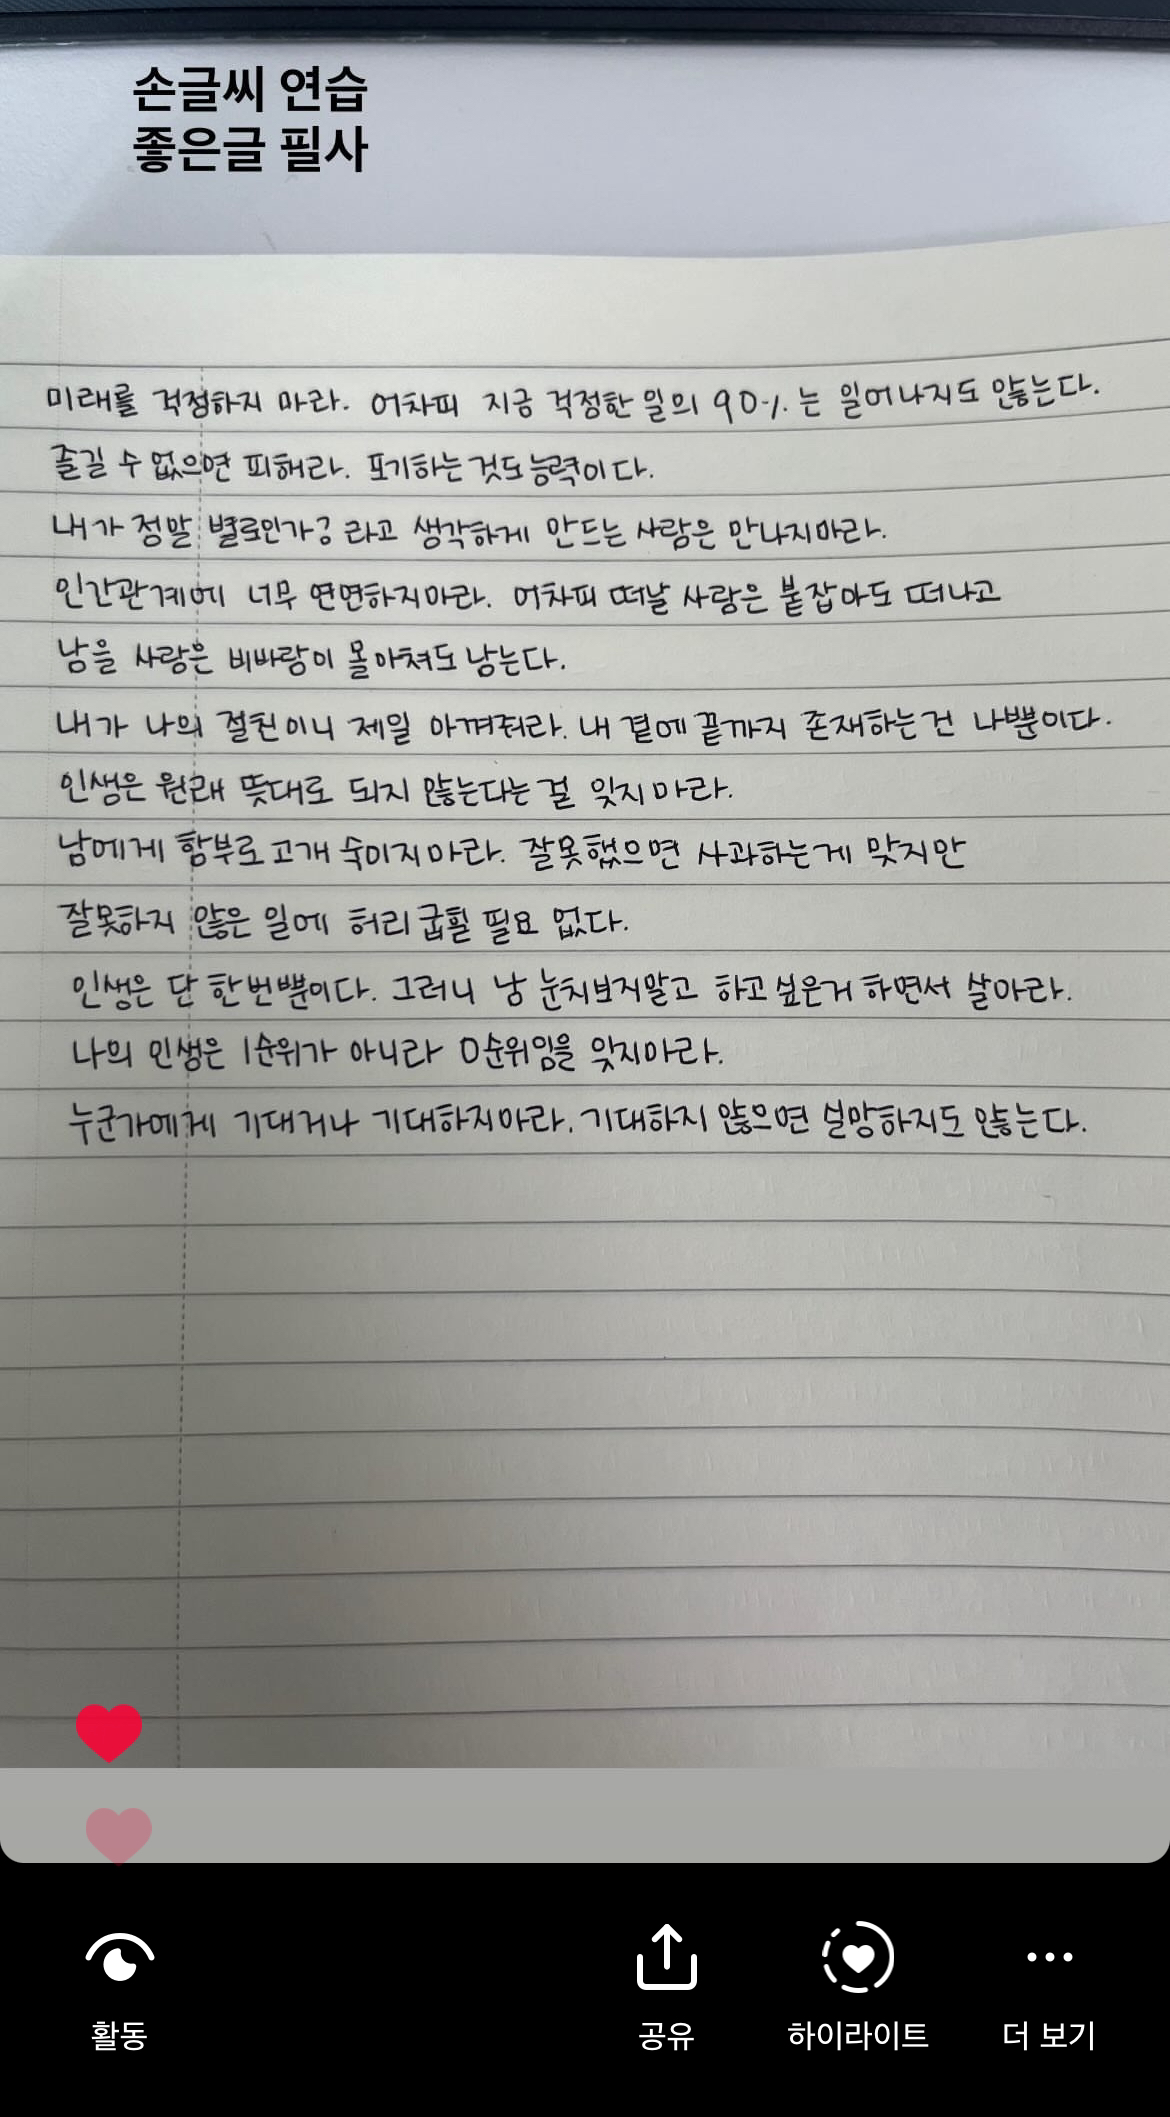 손글씨 연습
좋은글 필사
미래를 걱정하지 마라. 어차피 지금 걱정한 일의 90%는 일어나지도 않는다.
즐길 수 없으면 피해라. 포기하는것도 능력이다.
내가 정말 별로인가? 라고 생각하게 만드는 사람은 만나지마라.
인간관계에 너무 연연하지마라. 어차피 떠날 사람은 붙잡아도 떠나고
남을 사람은 비바람이 몰아쳐도 남는다.
내가 나의 절친이니 제일 아껴줘라. 내 곁에 끝까지 존재하는건 나뿐이다.
인생은 원래 뜻대로 되지 않는다는 걸 잊지마라.
남에게 함부로 고개 숙이지마라. 잘못했으면 사과하는게 맞지만
잘못하지 않은 일에 허리 굽힐 필요 없다.
인생은 단 한번뿐이다. 그러니 남 눈치보지말고 하고싶은거 하면서 살아라.
나의 인생은 1순위가 아니라 0순위임을 잊지마라.
누군가에게 기대거나 기대하지마라. 기대하지 않으면 실망하지도 않는다.
활동
공유
하이라이트
더 보기